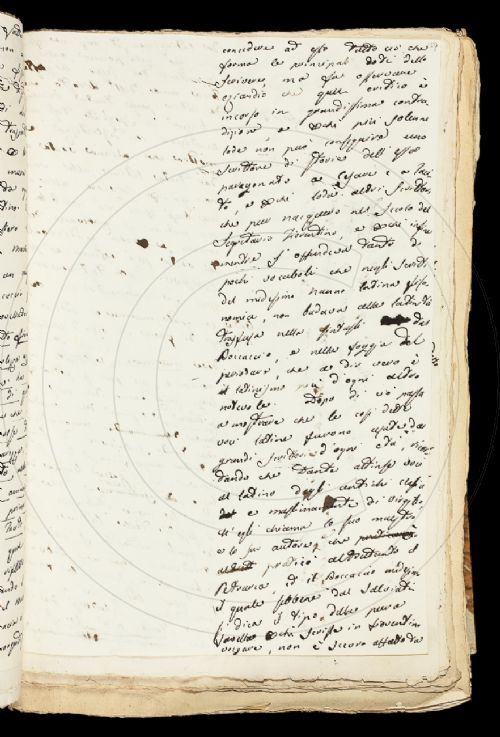 concedere ad esso tutto ciò che
forma le principali doti dello
scrivere, ma fa osservare
eziandio che quel critico è
incorso in grandissima contra
dizione, a chi più solenne
lode non può conseguire uno
Scrittore di storia dell'esser
paragonato a Cesare e a Taci
to, e chi loda altri Scrittori
che pur nacquero nel Secolo del
Segretario Fiorentino, e
s'offendeva tanto de'
pochi vocaboli che negli Scritti
del medesimo hanno latina fiso
nomia, non badava alla latinità
trasfusa nella sintassi del
Boccaccio, e nella foggia del
periodare, che a dir vero è
il latinissimo più d'ogni altro
notevole. Dopo di ciò passa
a mostrare che le così dette
voci latine furono usate da
grandi Scrittori d'ogni età, ricor
dando che Dante attinse voci
al latino degli antichi classici
e massimamente di Virgilio
ch'egli chiama lo suo maestro,
e lo suo autore, che
praticò altrettanto il
Petrarca, ed il Boccaccio medesimo
il quale sebbene dal Salviati
si dica il tipo della pura
favella che scrisse in fiorentino
volgare, non è sicuro affatto da